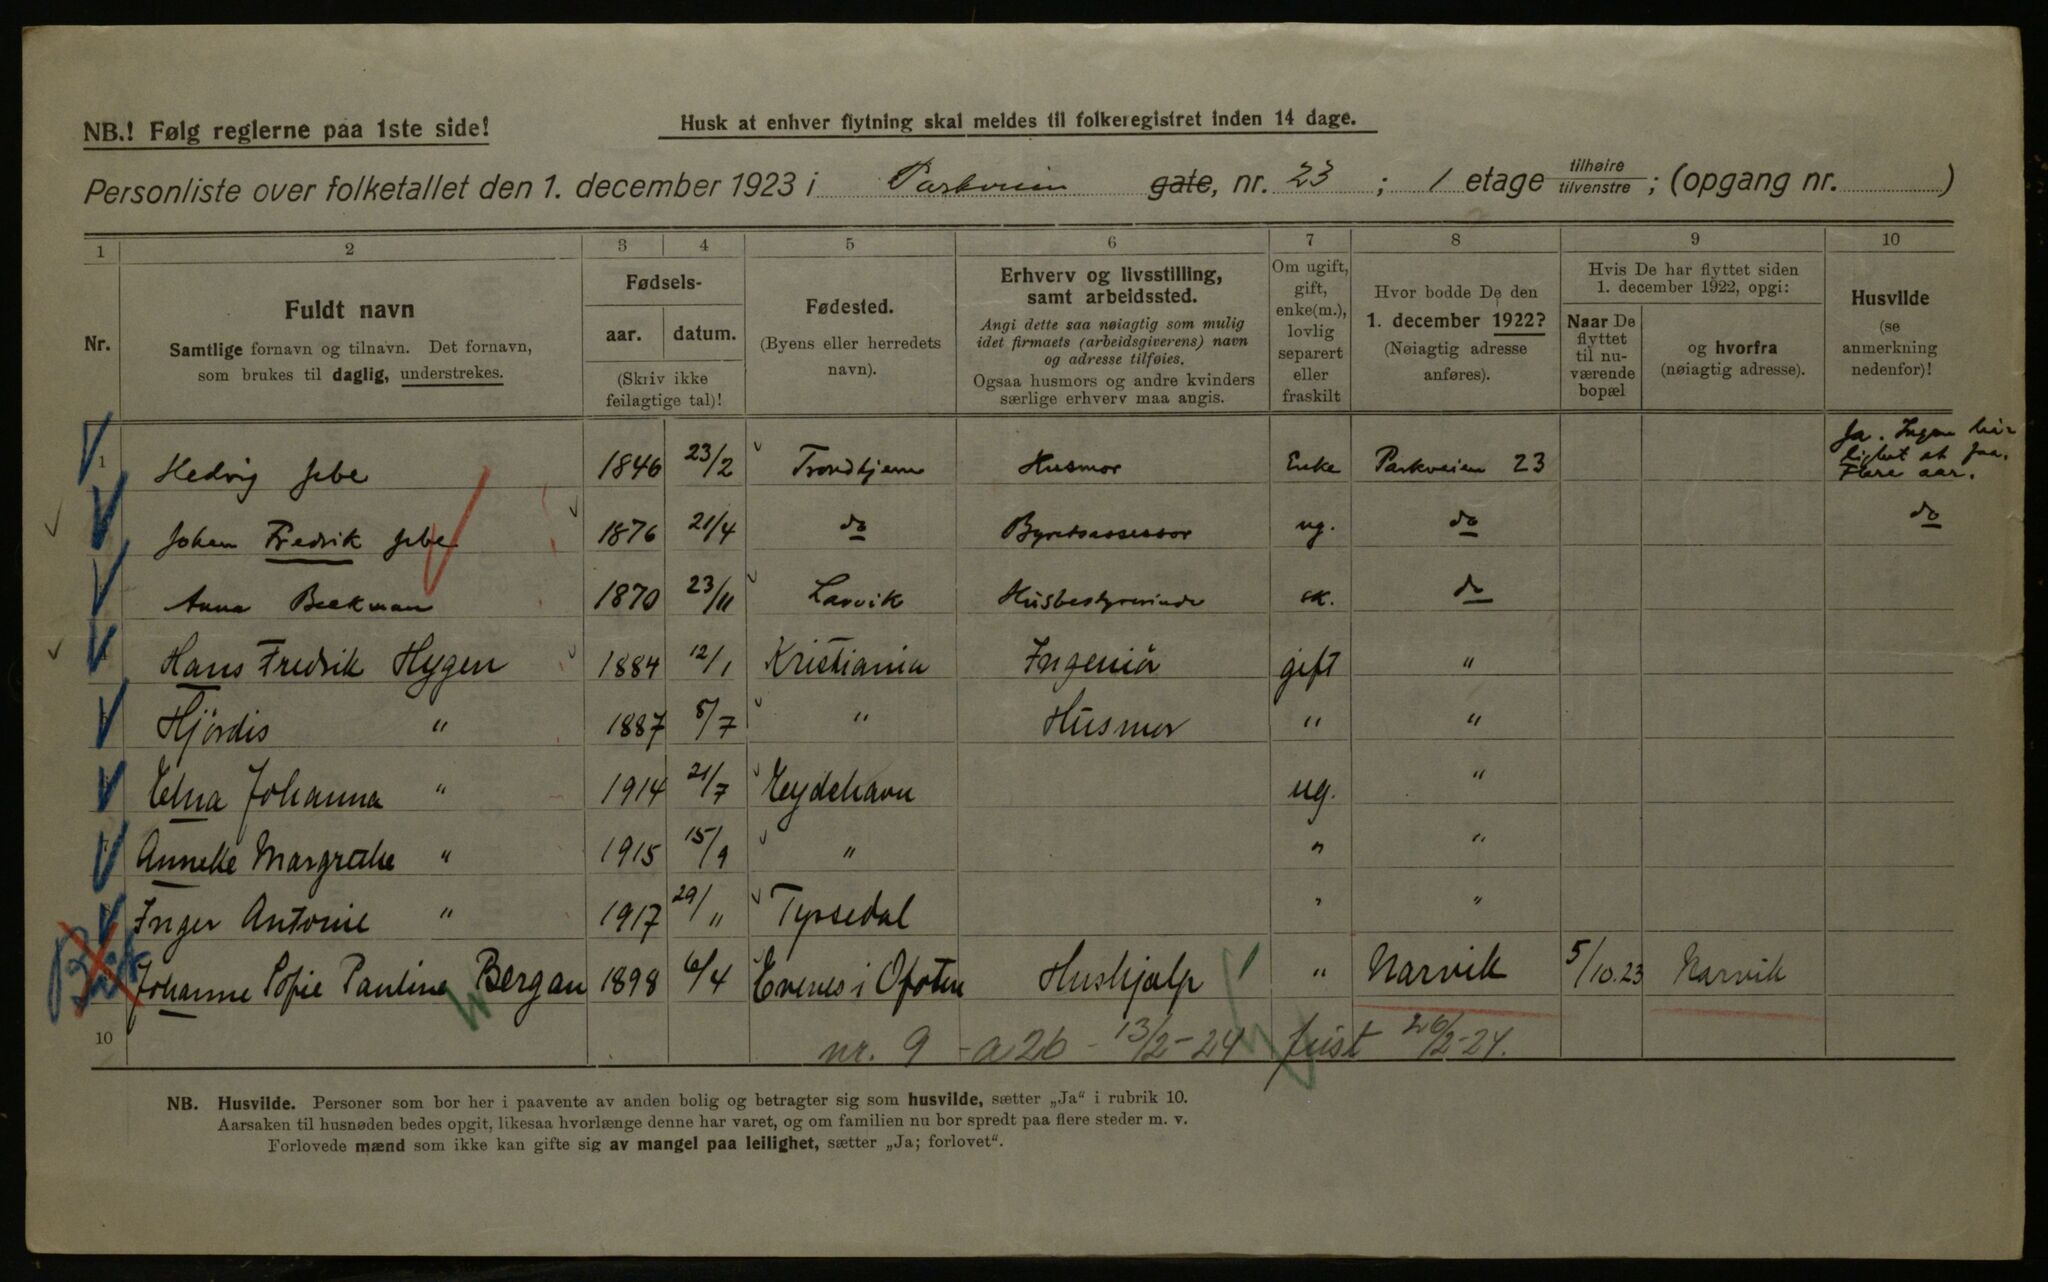 NB.! Følg reglerne paa 1ste side!
Husk at enhver flytning skal meldes til folkeregistret inden 14 dage.
Personliste over folketallet den 1. december 1923 i Parkveien gate, nr. 23 ; 1 etage tilhøire tilvenstre ; (opgang nr. )
1 2 3 4 5 6 7 8 9 10
Nr.
Fuldt navn
Samtlige fornavn og tilnavn. Det fornavn,
som brukes til daglig, understrekes.
Fødsels-
aar. datum.
(Skriv ikke
feilagtige tal)!
Fødested.
(Byens eller herredets
navn).
Erhverv og livsstilling,
samt arbeidssted.
Angi dette saa nøiagtig som mulig
idet firmaets (arbeidsgiverens) navn
og adresse tilføies.
Ogsaa husmors og andre kvinders
særlige erhverv maa angis.
Om ugift,
gift,
enke(m.),
lovlig
separert
eller
fraskilt
Hvor bodde De den
1. december 1922?
(Nøiagtig adresse
anføres).
Hvis De har flyttet siden
1. december 1922, opgi:
Naar De
flyttet
til nu-
værende
bopæl
og hvorfra
(nøiagtig adresse).
Husvilde
(se
anmerkning
nedenfor)!
1 Hedvig Jebe 1846 23/2 Trondhjem Husmor Enke Parkveien 23 Ja. Ingen at faa. Flere aar.
Johan Fredrik Jebe 1876 21/4 do Byretsassessor ug. do do
Anna Beekman 1870 23/11 Larvik Husbestyrerinde sk. do
Hans Fredrik Hygen 1884 12/1 Kristiania Ingeniör gift "
Hjördis " 1887 8/7 " Husmor " "
Edna Johanna " 1914 21/7 Eydehavn ug. "
Anneke Margrethe " 1915 15/9 " " "
Inger Antonie " 1917 29/11 Tyssedal " "
Johanne Sofie Pauline Bergan 1898 6/4 Evenes i Ofoten Hushjælp " Narvik 5/10.23 Narvik
10 nr. 9 - a 26 - 13/2-24 26/2-24.
NB. Husvilde. Personer som bor her i paavente av anden bolig og betragter sig som husvilde, sætter „Ja“ i rubrik 10.
Aarsaken til husnøden bedes opgit, likesaa hvorlænge denne har varet, og om familien nu bor spredt paa flere steder m. v.
Forlovede mænd som ikke kan gifte sig av mangel paa leilighet, sætter „Ja; forlovet“.